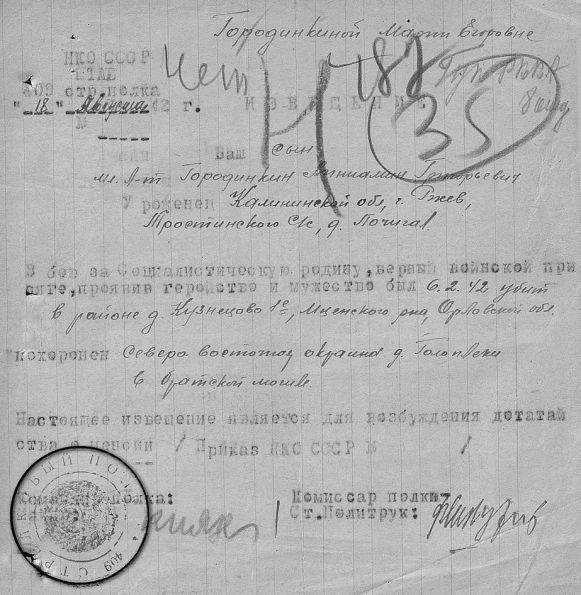 Городинкиной Марии Егоровне
НКО СССР
ШТАБ
409 стр.полка
"18" Августа 42 г.
№
нет
183
35
ИЗВЕЩЕНИЕ
Ваш сын
мл. л-т Городинкин Виниамин Григорьевич
Уроженец Калининской обл, г. Ржев,
Тростинского С/с, д.
В бою за Социалистическую родину, верный воинской при
сяге, проявив геройство и мужество был 6.2.42 убит
в районе д. Кузнецово 1е, Мценского Орловской обл.
похоронен Северо восточ окраина д.
в братской могиле.
Настоящее извещение является для возбуждения дотатай
ства о пенсии / Приказ НКО СССР № /
полка:
Комиссар полка
Ст.Политрук:
409